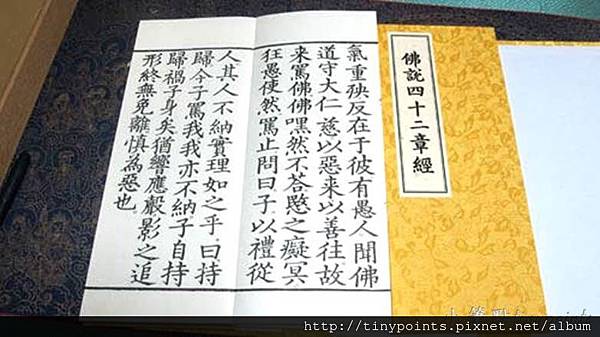 佛說四十二章經
氣重殃反在于彼有愚人聞佛
道守大仁慈以惡來以善往故
來罵佛佛嘿然不答愍之癡冥
狂愚使然罵止問曰子以禮從
人其人不納實理如之乎曰持
歸今子罵我我亦不納子自持
歸禍子身矣猶響應聲影之追
形終無免離慎為惡也
http://tinypoints.pixnet.net/album